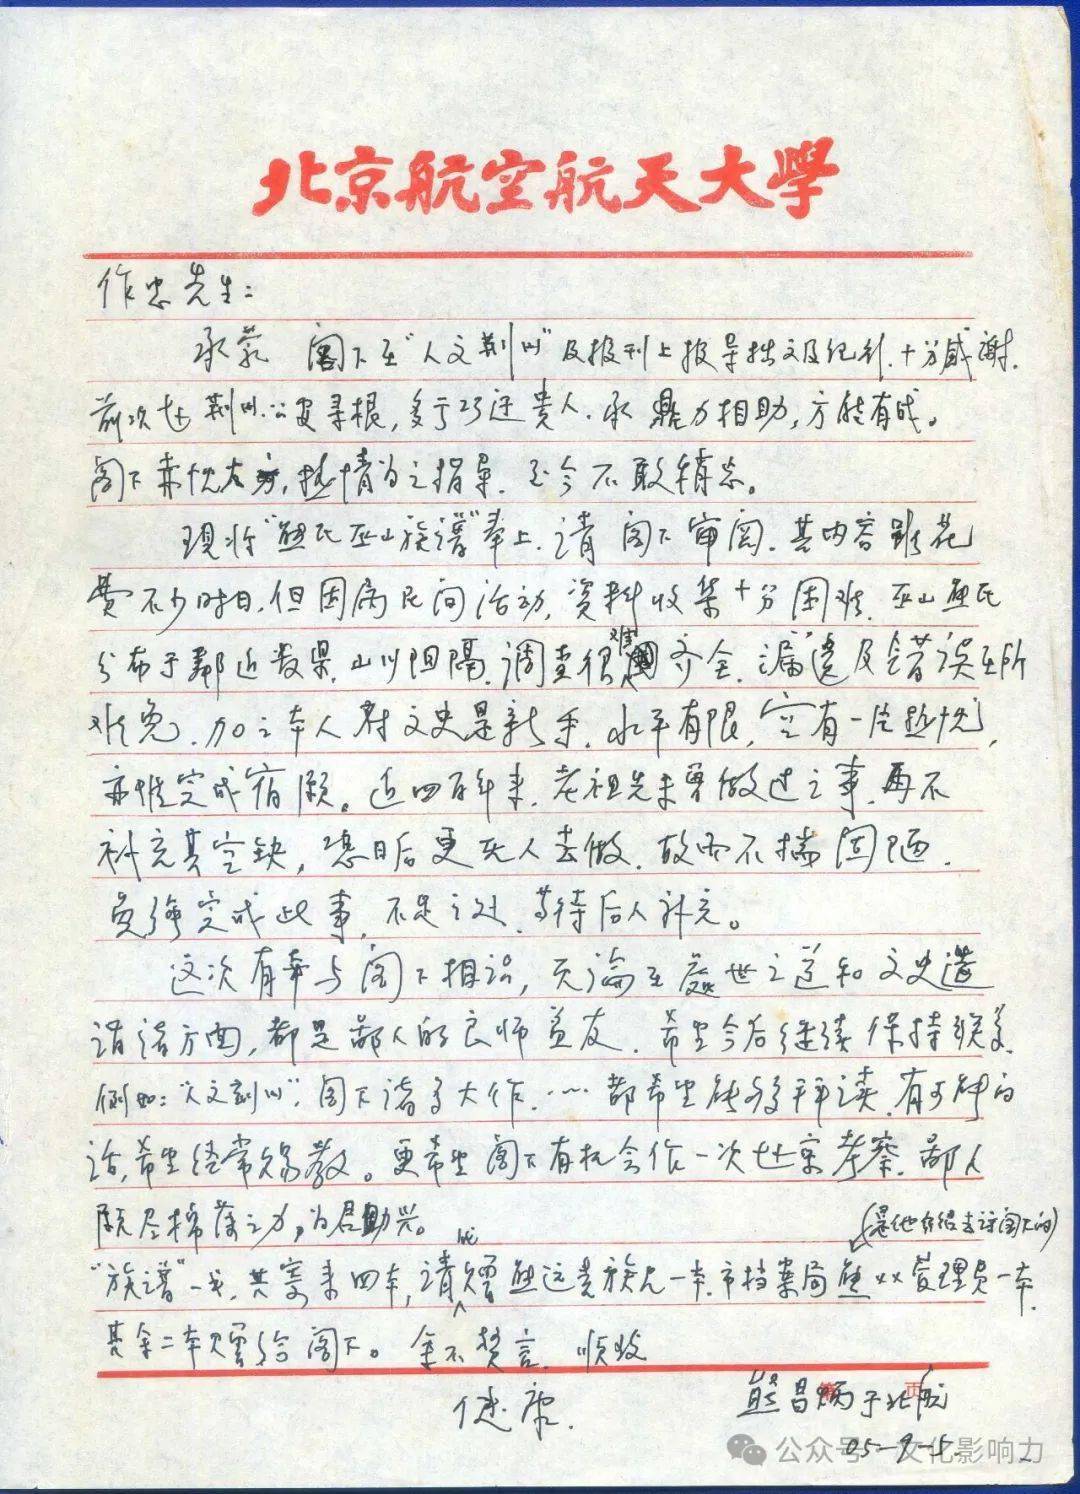 北京航空航天大學
作忠先生：
承蒙 阁下在"人文荆州"及报刊上报导拙文及纪行，十分感谢。
前次赴荆州、公安寻根，多亏巧逢贵人，承鼎力相助，方能有成。
阁下亦忱大方，热情为之指导，至今不敢稍忘。
现将"熊氏巫山族谱"奉上，请 阁下审阅。其内容虽花
费不少时日，但因属民间活动，资料收集十分困难，巫山熊氏
分布于邻近数县，山川阻隔，调查很难齐全，漏遗及错误在所
难免，加之本人对文史是新手，水平有限，空有一片热忱，
亦难完成宿愿。近四百年来，老祖先未曾做过之事，再不
补充其空缺，恐日后更无人去做，故而不揣固陋，
勉强完成此事，不足之处，等待后人补充。
这次有幸与阁下相识，无論在處世之道和文史造
诣诸方面，都是鄙人的良师益友，希望今后继续保持联系，
例如："人文荆州"，阁下诸多大作，…都希望能够拜读，有可能的
话，希望经常赐教。更希望阁下有机会作一次赴京考察，鄙人
愿尽棉薄之力，为君助兴。
（是他介绍去访阁下的）
"族谱"一书，共寄来四本，请能赠熊远贵族兄一本，市档案局熊××管理员一本，
其余二本赠给阁下。余不赘言，顺致
健康。
熊昌炳于北航
第 页
05-9-5
公众号·文化影响力